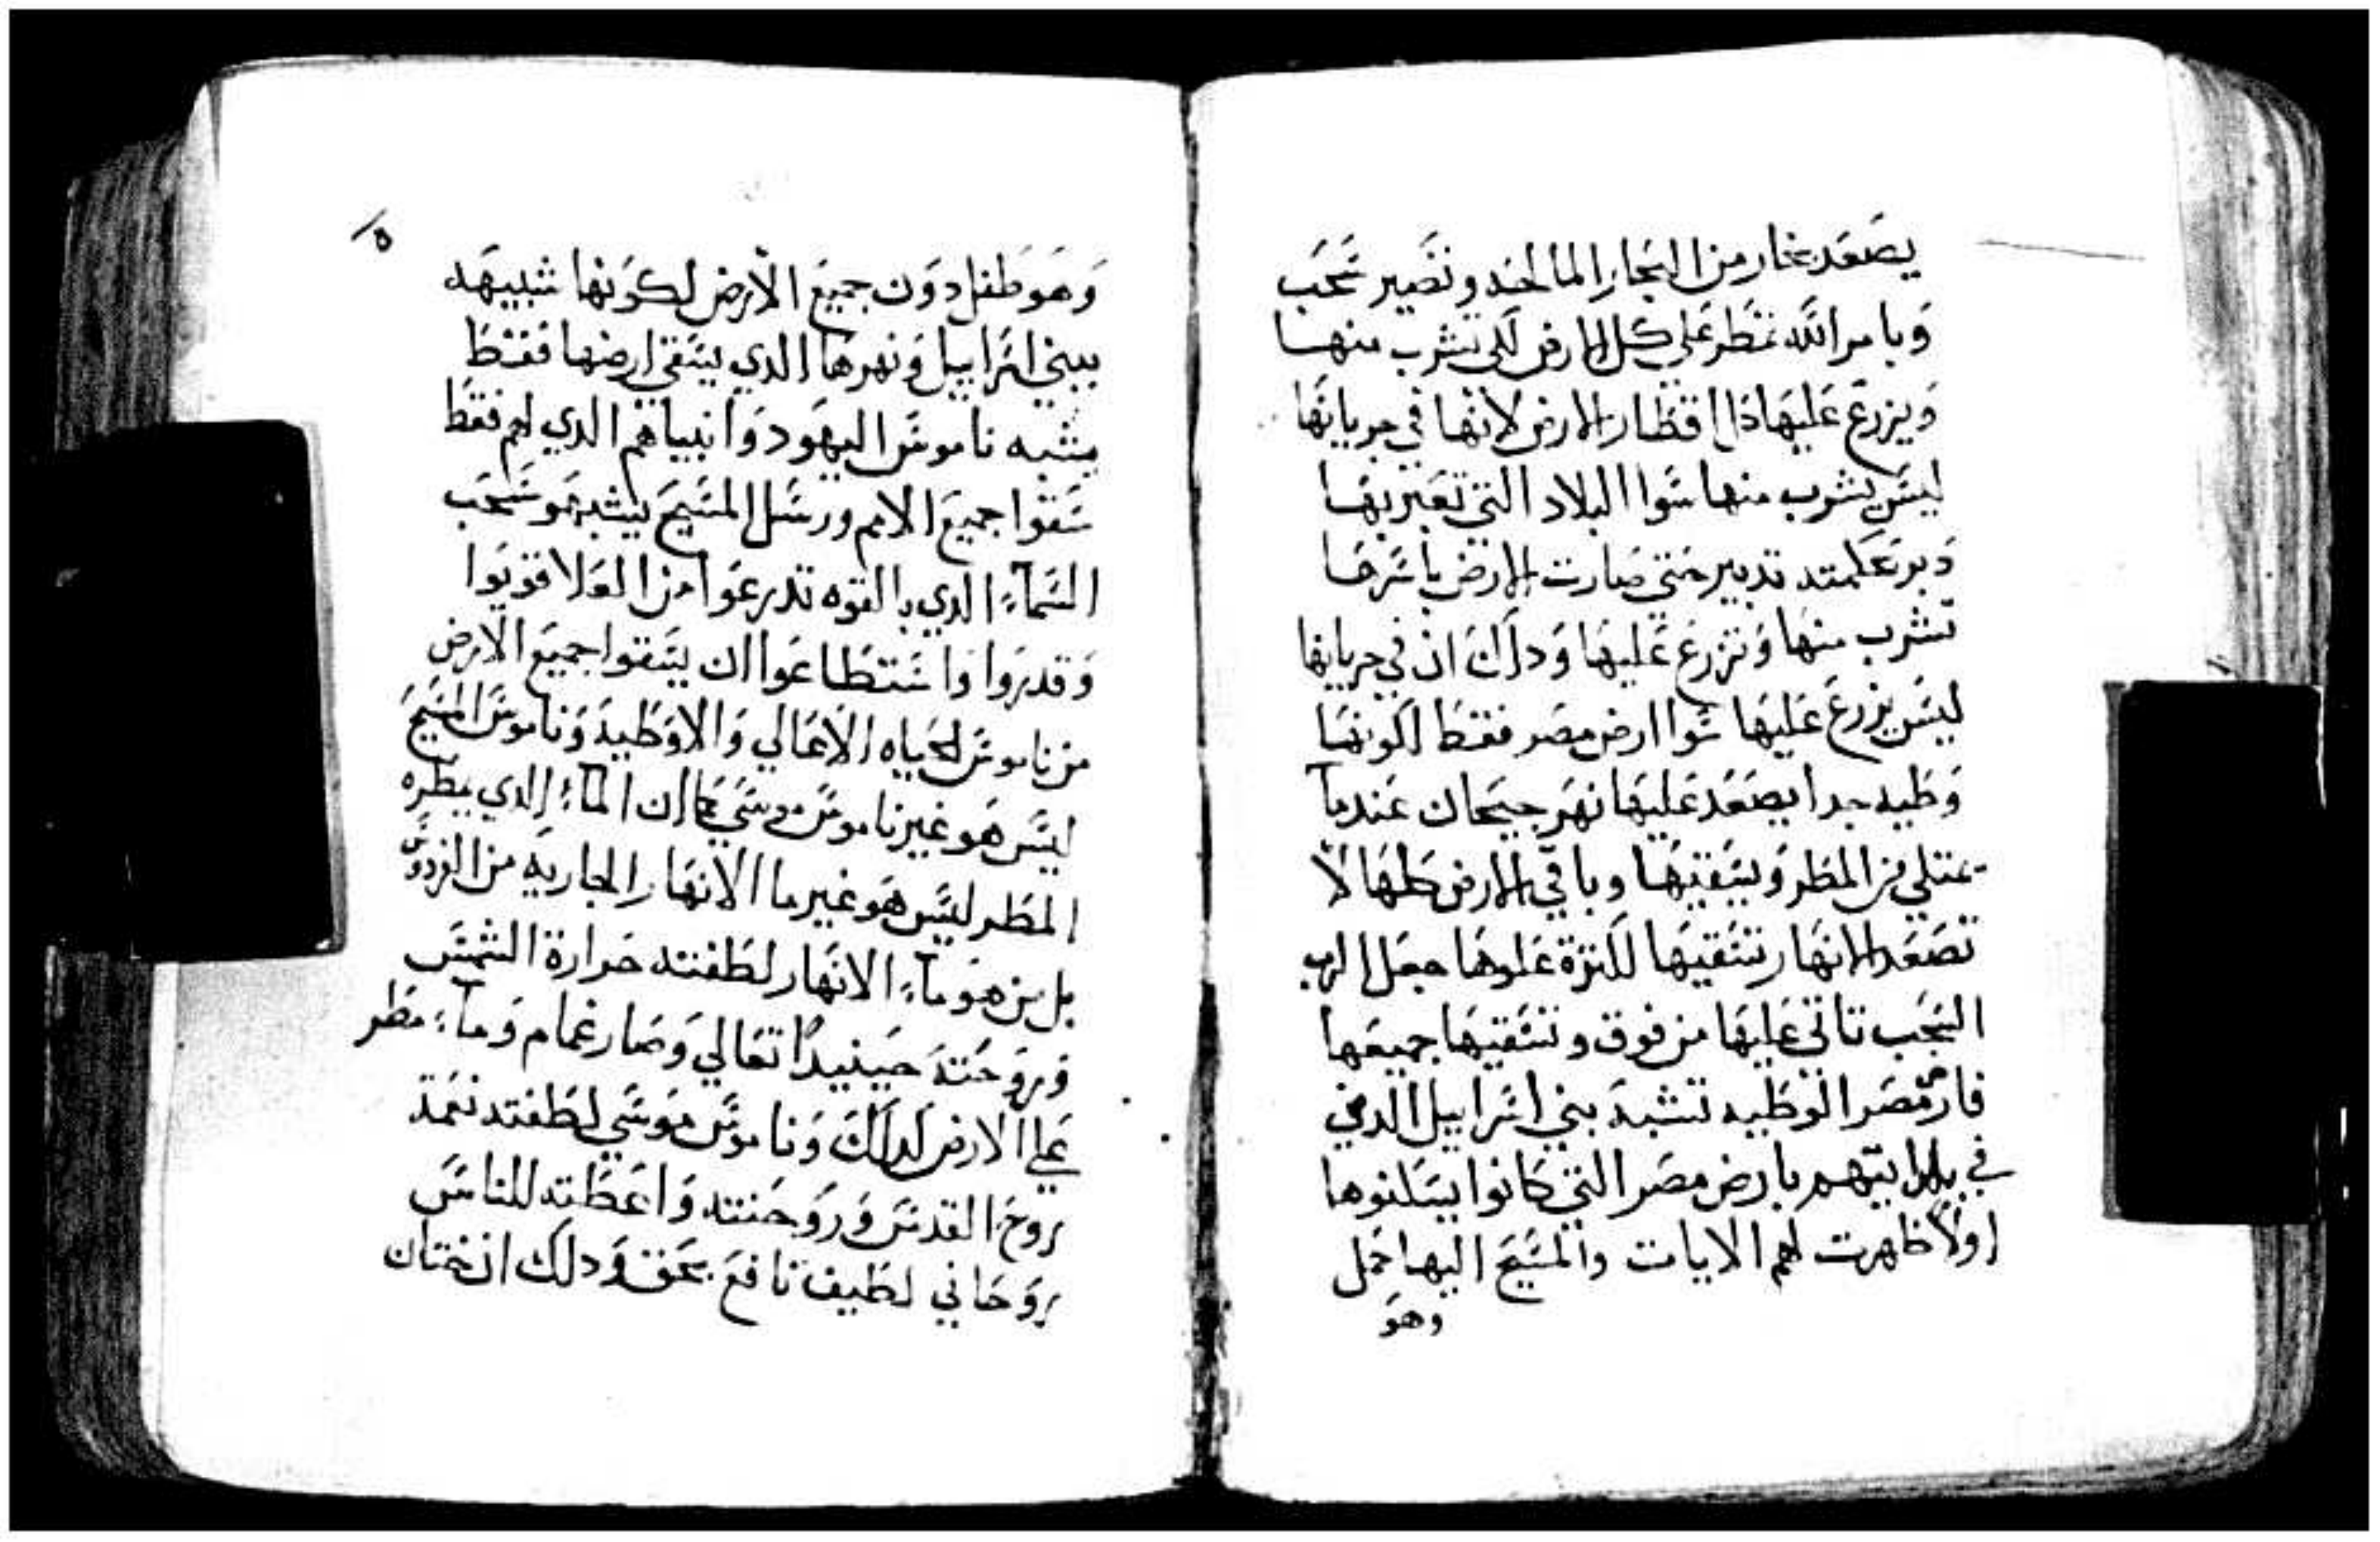 يصعد بخار من البحار المالحه وتصير سحب
وبامر الله تمطر علي كل الارض لكي تشرب منها
ويزرع عليها اقطار الارض لانها في جريانها
ليس يشرب منها سوا البلاد التي تعبر بها
تدبير حتي صارت الارض باسرها
تشرب منها وتزرع عليها ودلك ان في جريانها
ليس يزرع عليها سوا ارض مصر فقط لكونها
وطيه جدا يصعد عليها نهر جيحان عندما
يمتلي من المطر ويسقيها وباقي الارض كلها لا
تصعد الانهار تسقيها لكثرة علوها جعل الرب
السحب تاتي عليها من فوق وتسقيها جميعها
فارض مصر الوطيه تشبه بني اسراييل الدين
في بارض مصر التي كانوا يسكنوها
اولا ظهرت لهم الايات والمسيح اليها حمل
وهو
٥
وهو طفل دون جميع الارض لكونها شبيهه
ببني اسراييل ونهرها الدي يسقي ارضها فقط
يشبه ناموس اليهود وانبياهم الدي لهم فقط
سقوا جميع الامم ورسل المسيح يشبهو سحب
السماء الدي بالقوه تدرعوا من العلا قويوا
وقدروا واستطاعوا ان يسقوا جميع الارض
من ناموس الحياه الاعالي والاوطيه وناموس المسيح
ليس هو غير ناموس موسي كما ان الماء الدي يمطره
المطر ليس هو غير ما الانهار الجاريه من الفردوس
بل من هو ماء الانهار لطفته حرارة الشمس
وروحته حينيدا تعالي وصار غمام وماء مطر
علي الارض لدلك وناموس موسي لطفته نعمة
روح القدس وروحنته واعطته للناس
روحاني لطيف نافع بحق ودلك ان ختان